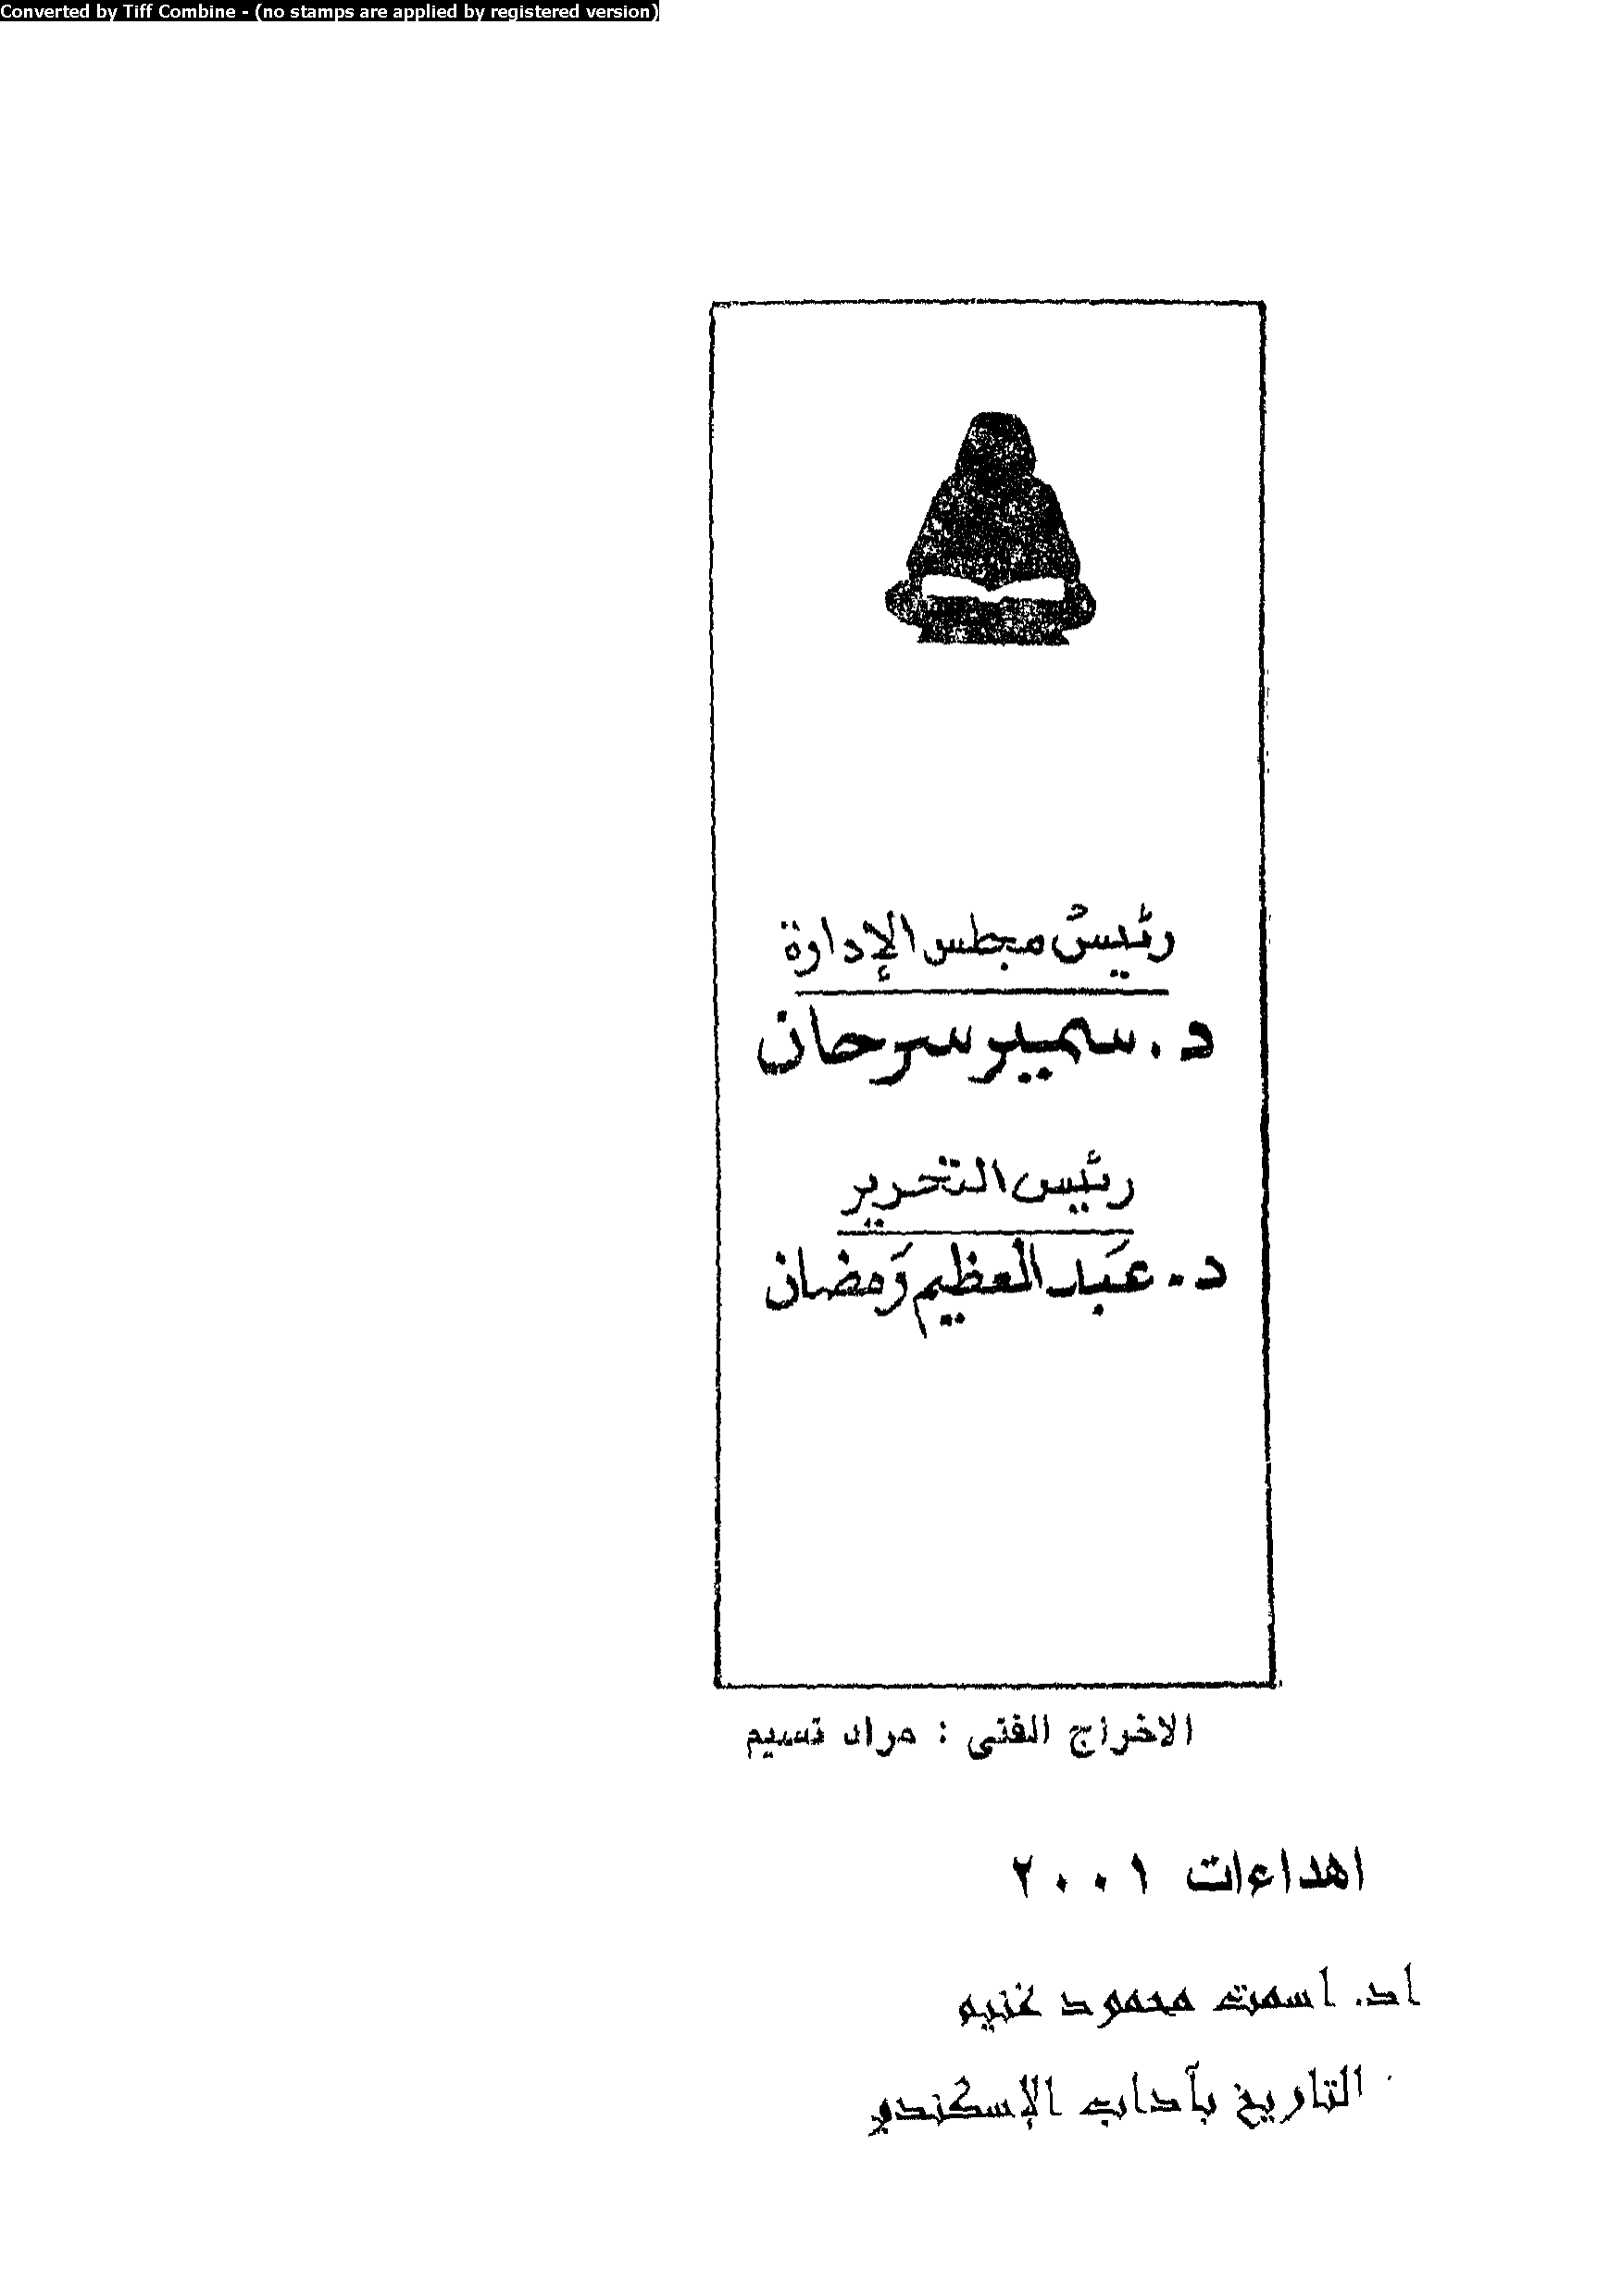 Converted by Tiff Combine - (no stamps are applied by registered version)
رئيس مجلس الإدارة
د. سمير سرحان
رئيس التحرير
د. عبد العظيم رمضان
الاخراج الفنى : مراد نسيم
اهداءات ٢٠٠١
اد. اسمت محمود غنيم
التاريخ بآداب الإسكندي